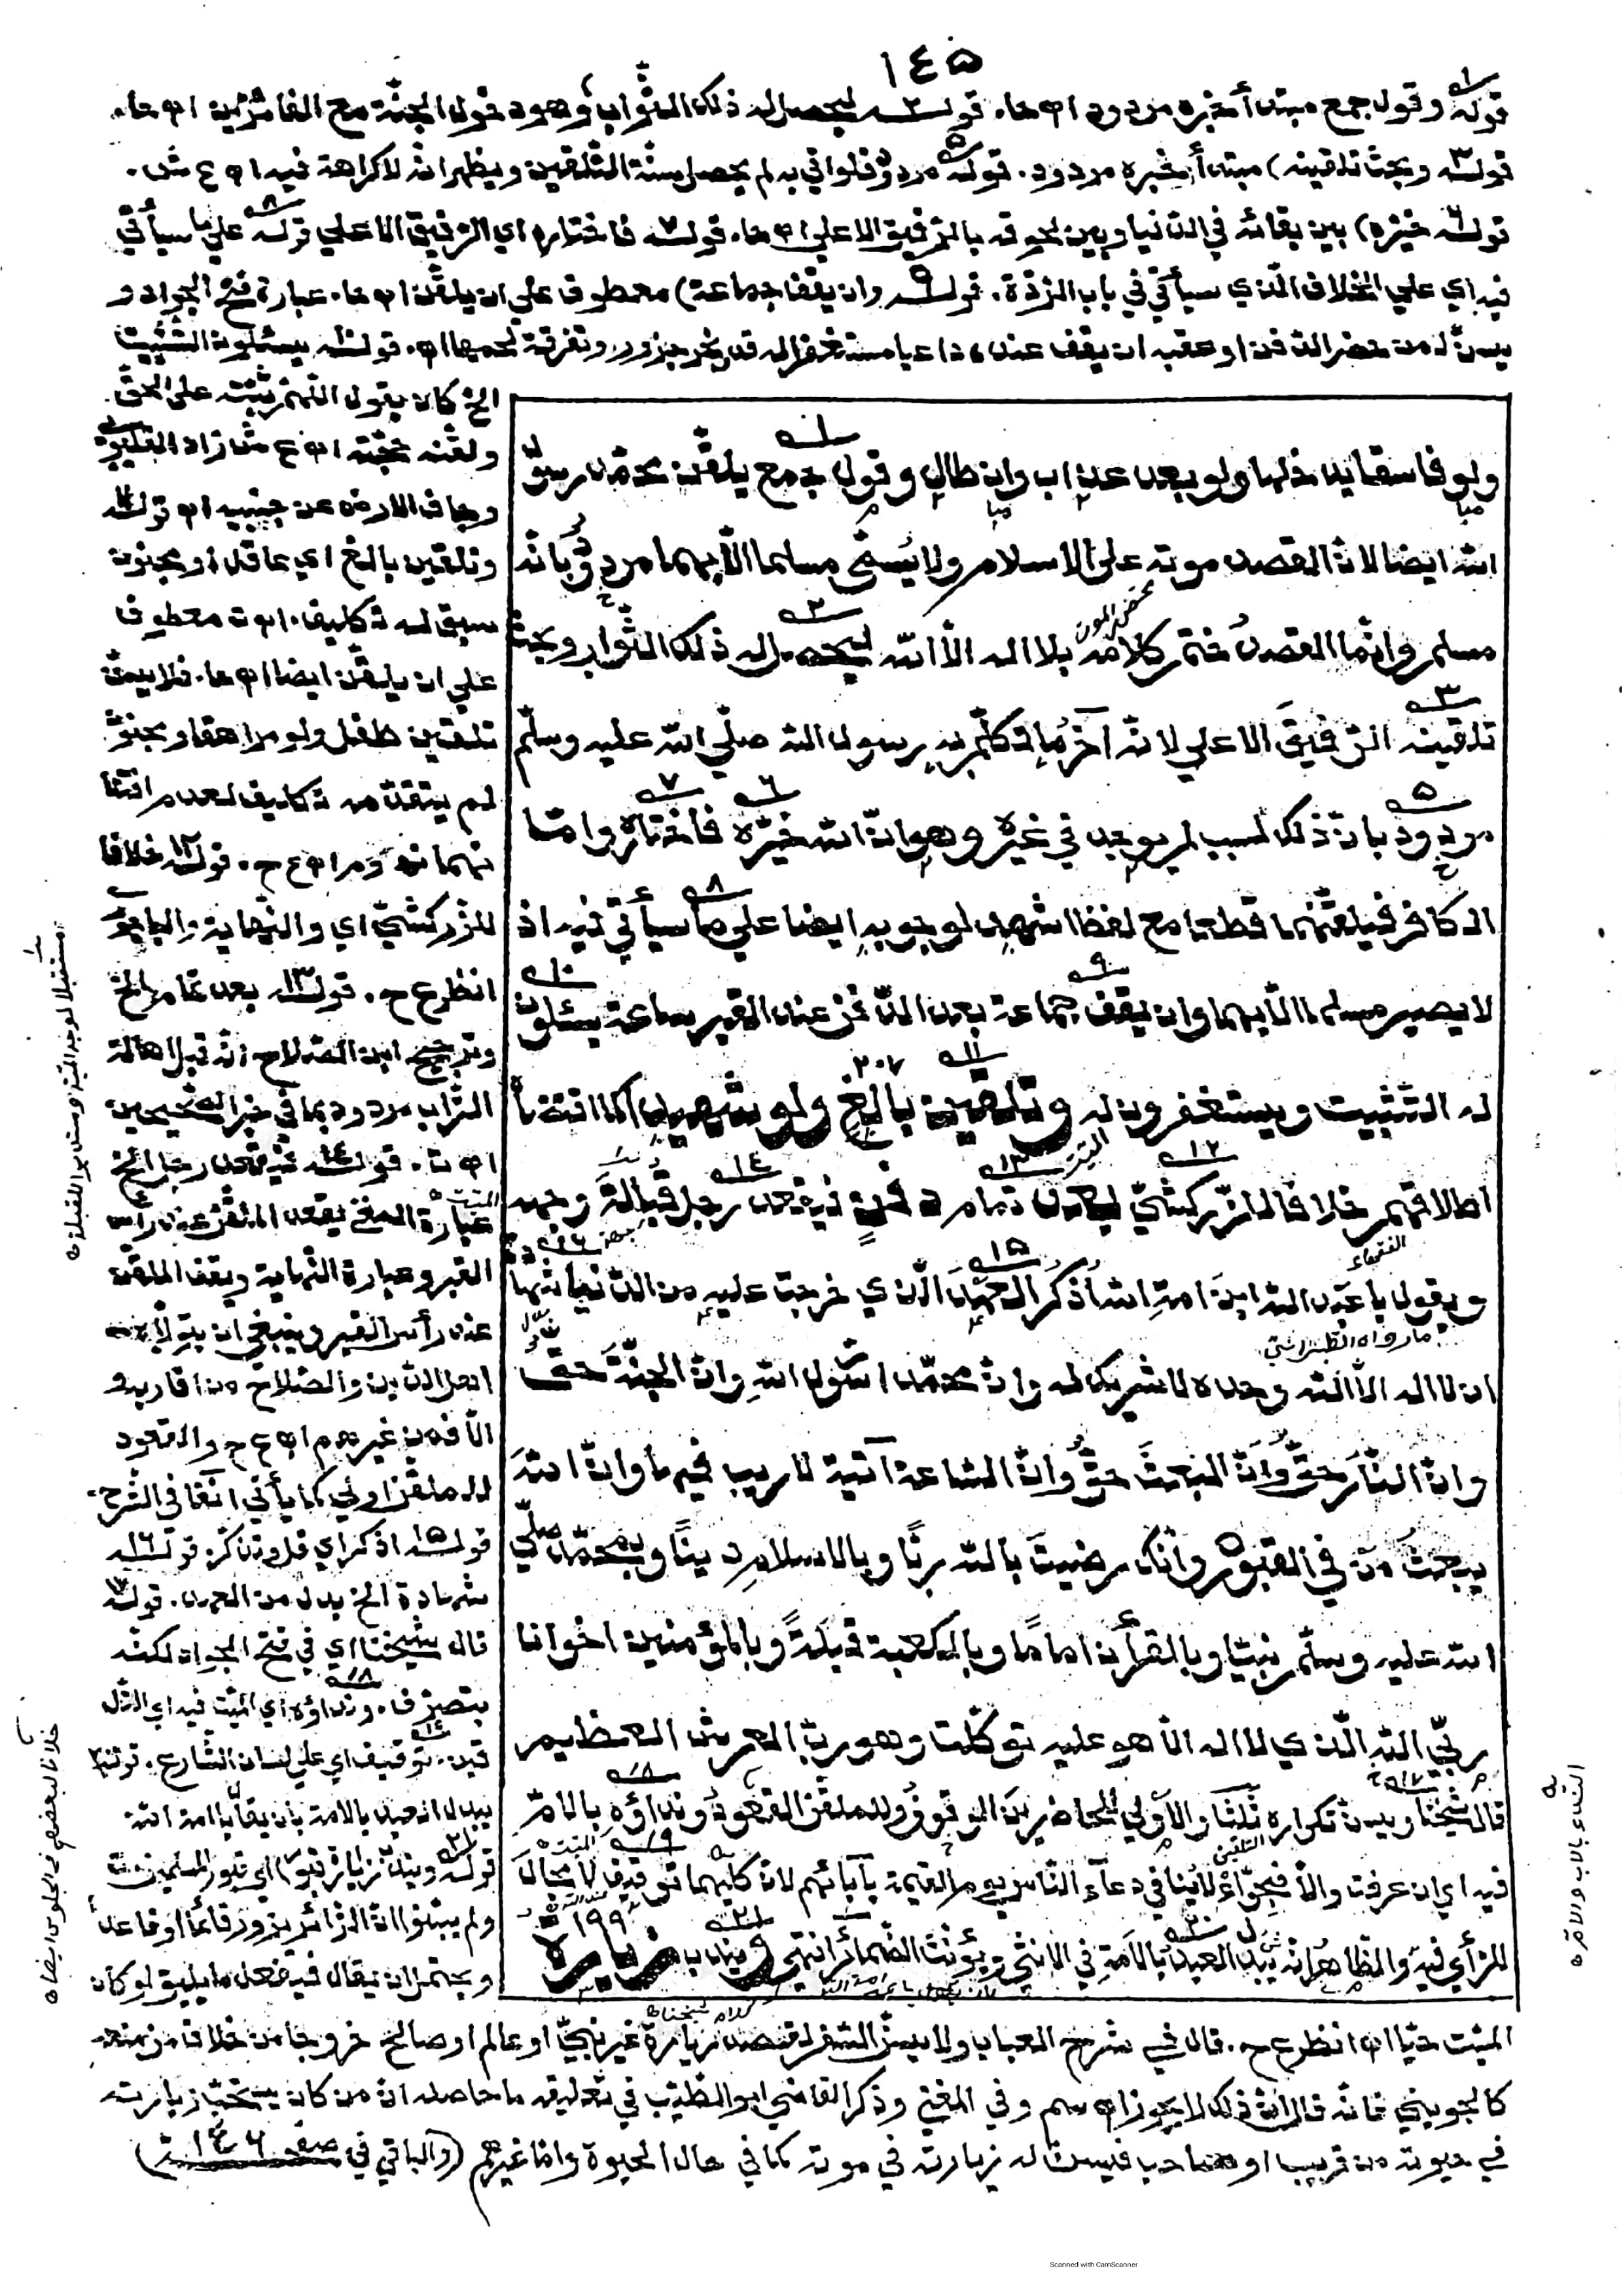 ١٤٥
قوله وقول جمع مبتدأ خبره مردود اه حا. قوله ليحصل له ذلك الثواب وهو دخول الجنة مع الفائزين اه حا.
قوله وبحث تلقينه) مبتدأ خبره مردود. قوله مردود فلو اتي به لم يحصل سنة التلقين ويظهر انه لا كراهة فيه اه ع ش.
قوله خيّره) بين بقائه في الدنيا وبين لحوقه بالرفيق الاعلي اه حا. قوله فاختاره اي الرفيق الاعلي قوله علي ما سيأتي
فيه اي علي الخلاف الذي سيأتي في باب الردة. قوله وان يقف جماعة) معطوف علي ان يلقن اه حا. عبارة فتح الجواد و
يسن لمن حضر الدفن او عقبه ان يقف عنده داعيا مستغفرا له قدر نحر جزور وتفرقة لحمها اه. قوله يسئلون التثبيت
الخ كان يقول اللهم ثبته علي الحق
ولقنه حجته اه ع ش زاد القليوبي
وجاف الارض عن جنبيه اه قوله
وتلقين بالغ اي عاقل او مجنون
سبق له تكليف. اه ت معطوف
علي ان يلقن ايضا اه حا. فلا يسن
تلقين طفل ولو مراهقا ومجنون
لم يتقدمه تكليف لعدم افتتا
نهما نه و م ر اه ع ح. قوله خلافا
للزركشي اي والنهاية والمغني
انظر ع ح. قوله بعد تمام الخ
وترجيح ابن الصلاح انه قبل اهالة
التراب مردود بما في خبر الصحيحين
اه ت. قوله فيقعد رجل الخ
عبارة المغني يقعد الملقن عند رأس
القبر وعبارة النهاية ويقف الملقن
عند رأس القبر وينبغي ان يتولاه
اهل الدين والصلاح من اقاربه و
الا فمن غيرهم اه ع ح والقعود
للملقن اولي كما يأتي آنفا في الشرح.
قوله اذكر اي قل وتذكر. قوله
شهادة الخ بدل من العهد. قوله
قال شيخنا اي في فتح الجواد لكنه
بتصرف. ونداؤه اي الميت فيه اي التل
قين. توقيف اي علي لسان الشارع. قوله
يبدل العبد بالامة بان يقال يا امة الله
قوله ويندب زيارة قبور) اي قبور المسلمين ت
ولم يبينوا ان الزائر يزور قائما او قاعدا
ويحتمل ان يقال فيه فعل ما يليق لو كان
ولو فاسقا يدخلها ولو بعد عذاب وان طال وقول جمع يلقن محمد رسول
الله ايضا لان القصد موته علي الاسلام ولا يسمي مسلما الا بهما مردود بانه
مسلم وانما القصد ختم كلامه بلا اله الا الله ليحصل له ذلك الثواب وبحث
تلقينه الرفيق الاعلي لانه آخر ما تكلم به رسول الله صلي الله عليه وسلم
مردود بان ذلك لسبب لم يوجد في غيره وهو ان الله خيّره فاختاره واما
الكافر فيلقنهما قطعا مع لفظ اشهد لوجوبه ايضا علي ما سيأتي فيه اذ
لا يصير مسلما الا بهما وان يقف جماعة بعد الدفن عند القبر ساعة يسئلون
له التثبيت ويستغفرون له وتلقين بالغ ولو شهيدا كما اقتضاه
اطلاقهم خلافا للزركشي بعد تمام دفن فيقعد رجل قبالة وجهه
ويقول يا عبد الله ابن امة الله اذكر العهد الذي خرجت عليه من الدنيا شهادة
ان لا اله الا الله وحده لا شريك له وان محمدا رسول الله وان الجنة حق
وان النار حق وان البعث حق وان الساعة آتية لا ريب فيها وان الله
يبعث من في القبور وانك رضيت بالله ربا وبالاسلام دينا وبمحمد صلي
الله عليه وسلم نبيا وبالقرآن اماما وبالكعبة قبلة وبالمؤمنين اخوانا
ربي الله الذي لا اله الا هو عليه توكلت وهو رب العرش العظيم
قال شيخنا ويسن تكراره ثلثا والاولي للحاضرين الوقوف وللملقن القعود ونداؤه بالام
فيه اي ان عرفت والا فبحواء لا ينافي دعاء الناس يوم القيمة بآبائهم لان كليهما توقيف لا مجال
للرأي فيه والظاهر انه يبدل العبد بالامة في الانثي ويؤنث الضمائر انتهي ويندب زيارة
الميت حيا اه انظر ع ح. قال في شرح العباب ولا يسن السفر لقصد زيارة غير نبي او عالم او صالح خروجا من خلاف من منعه
كالجويني فانه قال ان ذلك لا يجوز اه سم وفي المغني وذكر القاضي ابو الطيب في تعليقه ما حاصله ان من كان يستحب زيارته
في حيوته من قريب او صاحب فيسن له زيارته في موته كما في حال الحيوة واما غيرهم (والباقي في صفحه ١٤٦)
مستقبلا لوجه الميت ومستدبرا للقبلة
خلافا لبعضهم في الجلوس ايضا
النداء بالاب والام
Scanned with CamScanner